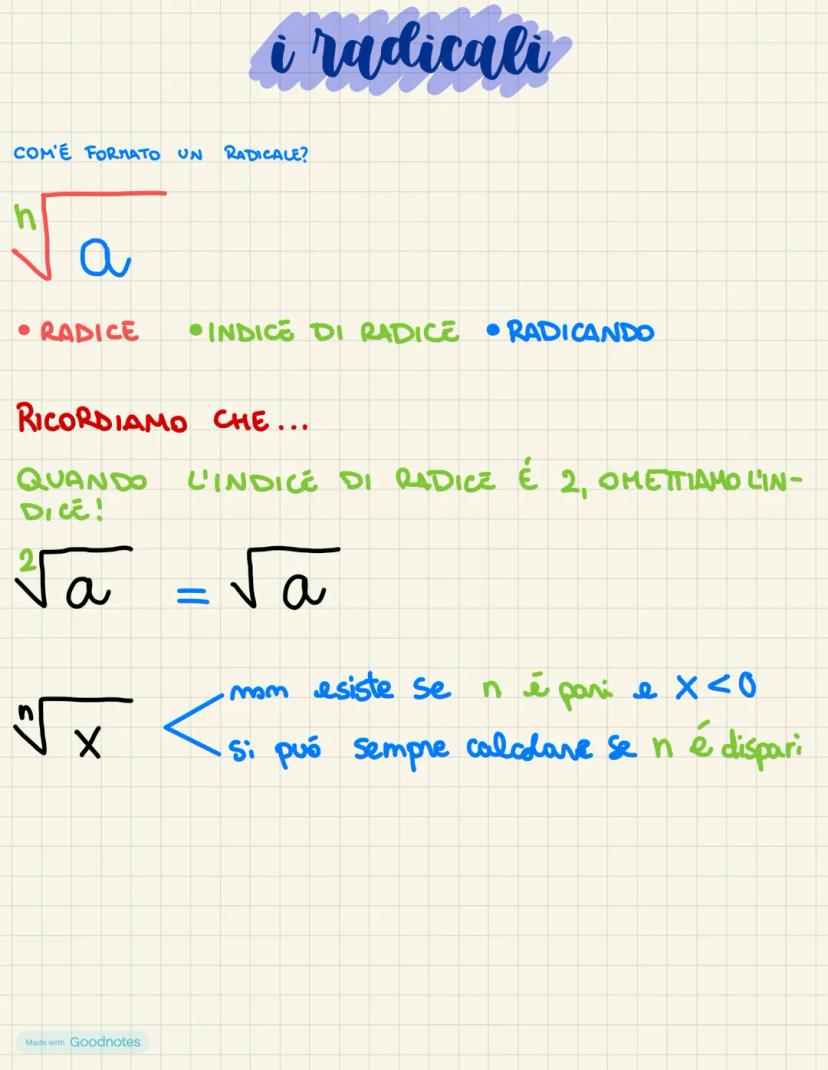 i radicali
COM'É FORMATO UN RADICALE?
n√a
• RADICE • INDICE DI RADICE • RADICANDO
RICORDIAMO CHE...
QUANDO L'INDICE DI RADICE É 2, OMETTIAMO L'IN-
DICE!
2√a = √a
non esiste se n é pari e x < 0
n√x
si puó sempre calcolare se n é dispari
Made with Goodnotes